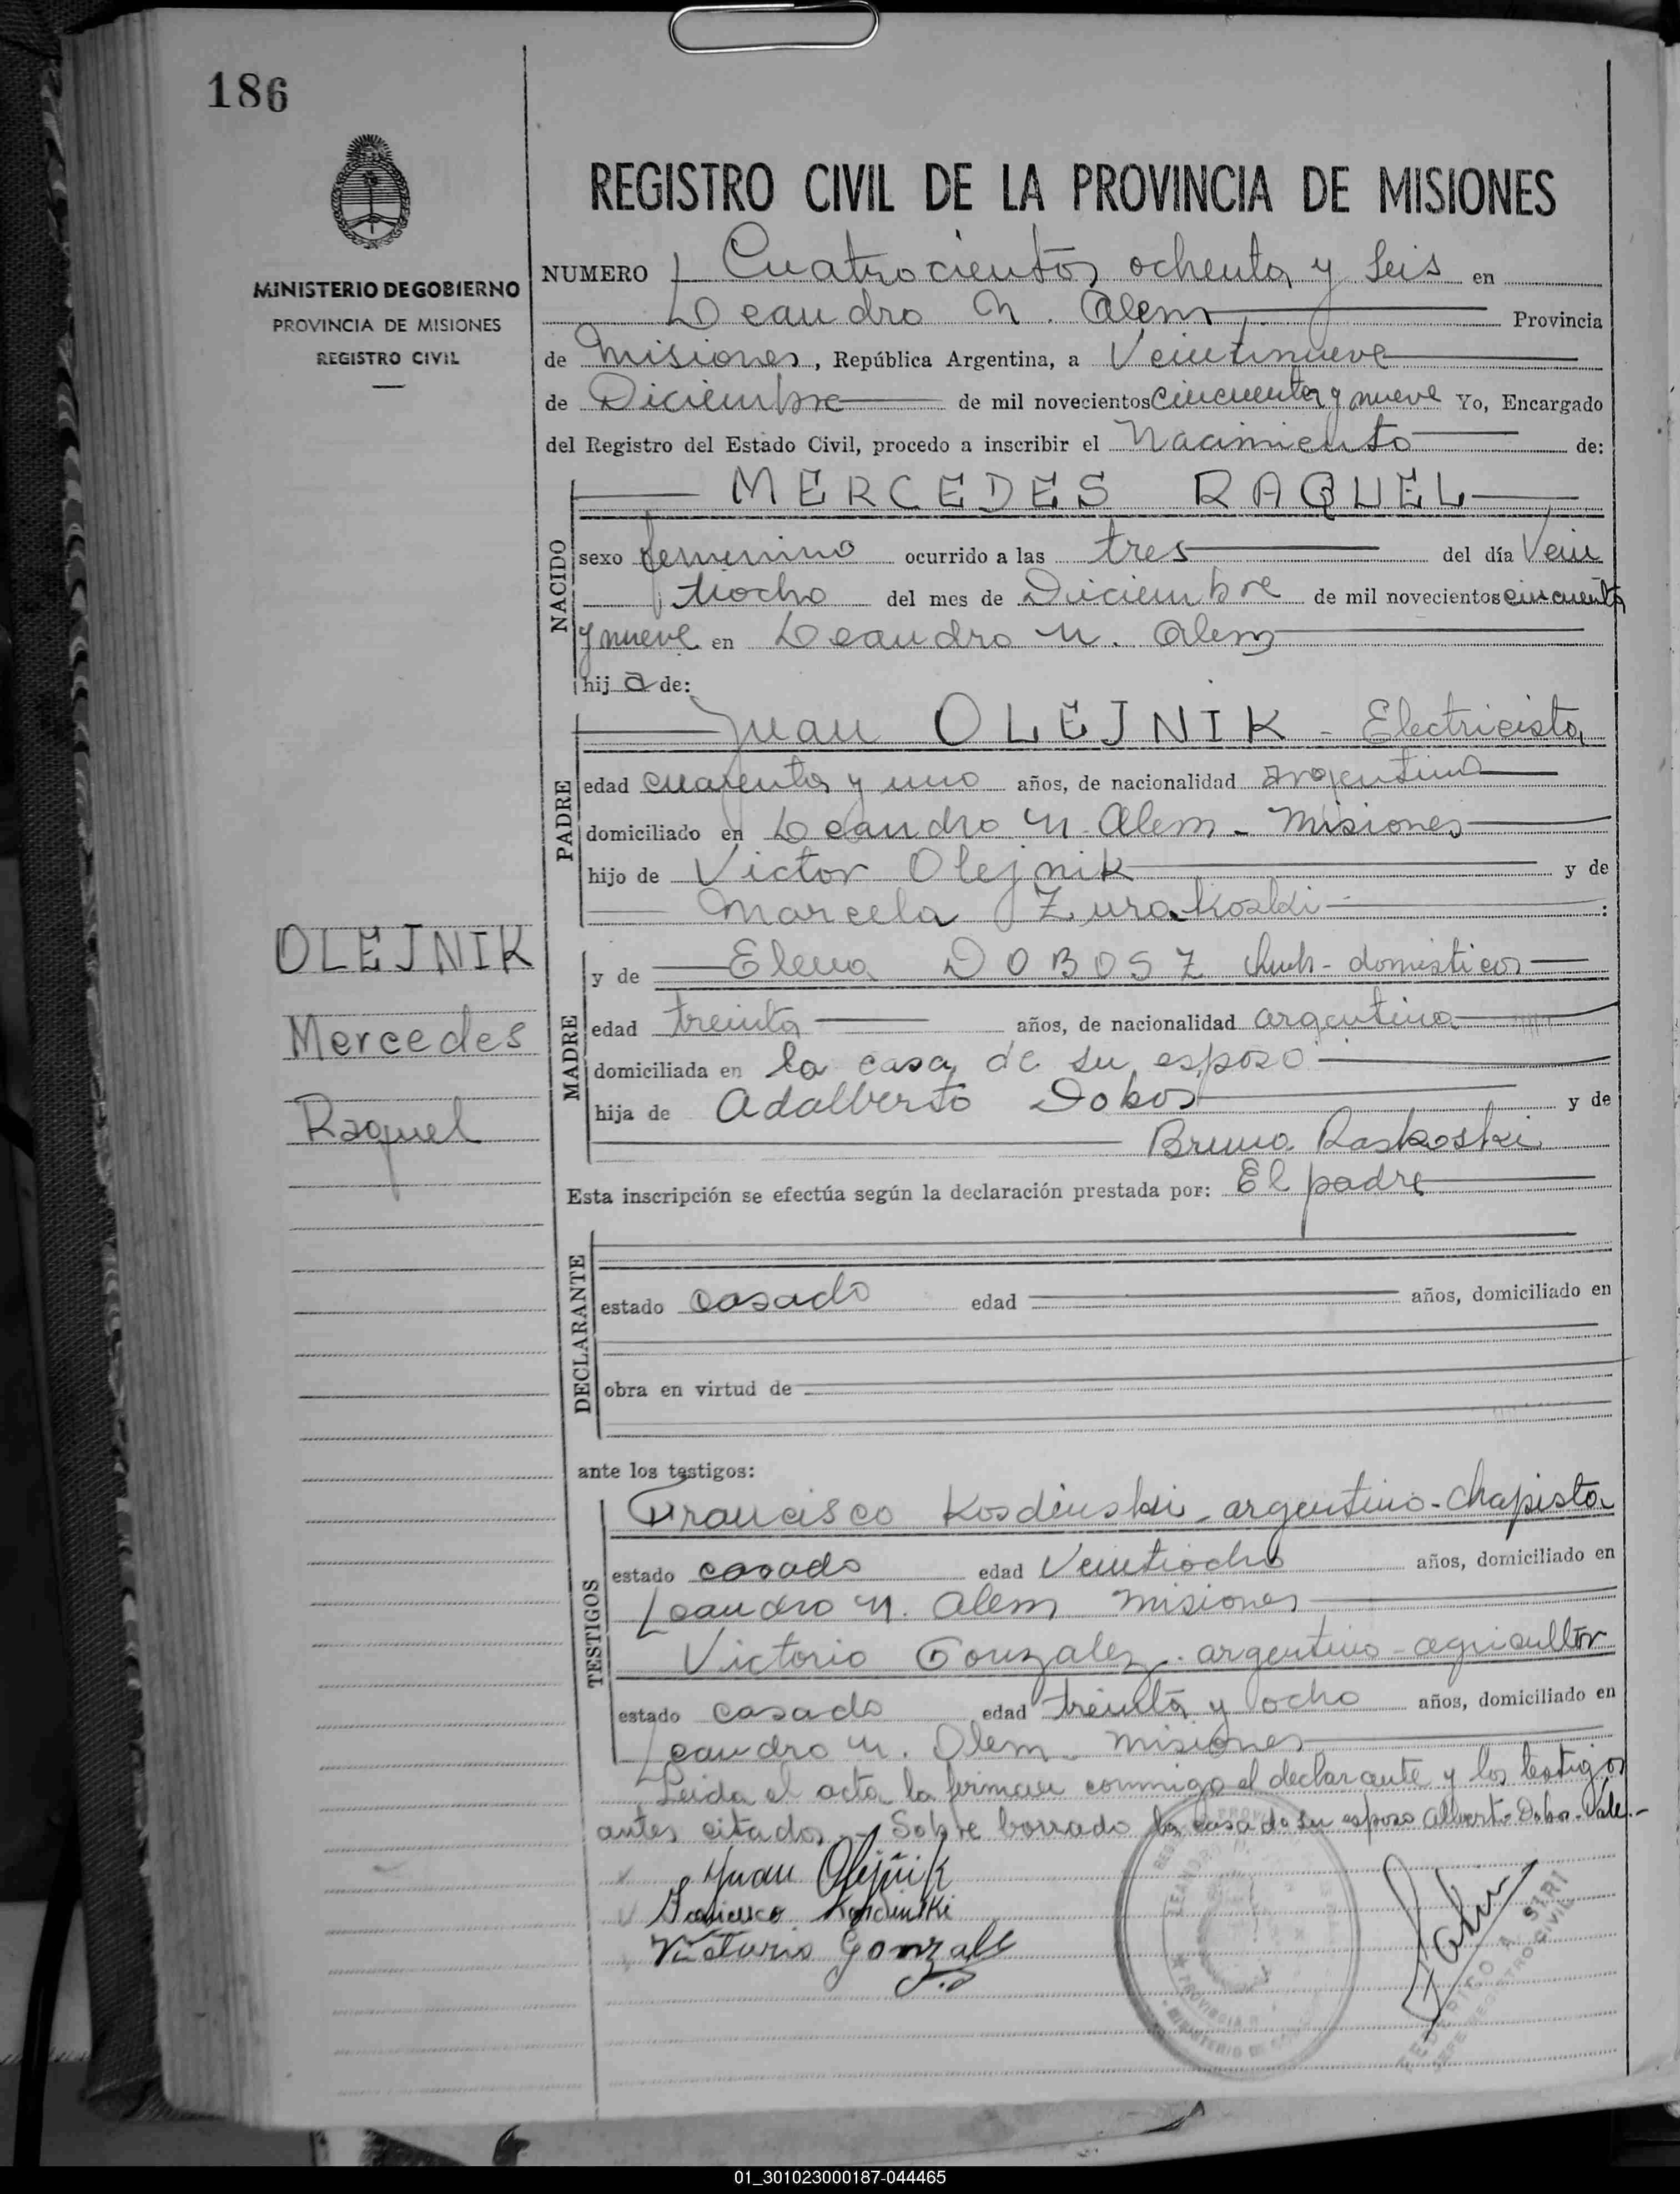 186
REGISTRO CIVIL DE LA PROVINCIA DE MISIONES
MINISTERIO DE GOBIERNO
PROVINCIA DE MISIONES
REGISTRO CIVIL
NUMERO Cuatrocientos ochenta y seis en
Leandro N. Alem Provincia
de Misiones, República Argentina, a Veintinueve
de Diciembre de mil novecientos cincuenta y nueve Yo, Encargado
del Registro del Estado Civil, procedo a inscribir el Nacimiento de:
NACIDO
MERCEDES RAQUEL
sexo femenino ocurrido a las tres del día Vein
tiocho del mes de Diciembre de mil novecientos cincuenta
y nueve en Leandro N. Alem
hij a de:
PADRE
Juan OLEJNIK - Electricista
edad cuarenta y uno años, de nacionalidad argentino
domiciliado en Leandro N. Alem - Misiones
hijo de Victor Olejnik y de
Marcela Zurakoski :
OLEJNIK
Mercedes
Raquel
MADRE
y de Elena DOBOSZ domesticos
edad treinta años, de nacionalidad argentina
domiciliada en la casa de su esposo
hija de Adalberto Dobos y de
Bruna Raskoski
Esta inscripción se efectúa según la declaración prestada por: El padre
DECLARANTE
estado casado edad años, domiciliado en
obra en virtud de
ante los testigos:
TESTIGOS
Francisco Kosdinski - argentino - Chapista
estado casado edad Veintiocho años, domiciliado en
Leandro N. Alem Misiones
Victorio Gonzalez - argentino - agricultor
estado casado edad treinta y ocho años, domiciliado en
Leandro N. Alem - Misiones
Leida el acta la firman conmigo el declarante y los testigos
antes citados - Sobre borrado la casa de su esposo Dobos - Vale.-
Juan Olejnik
Francisco Kosdinski
Victorio Gonzalez
FEDERICO A. SIRI
JEFE REGISTRO CIVIL
01_301023000187-044465